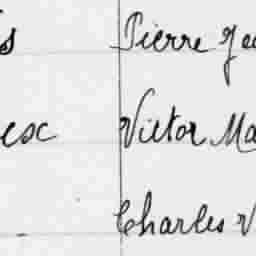 s Pierre Jea
esc Victor Ma
Charles V